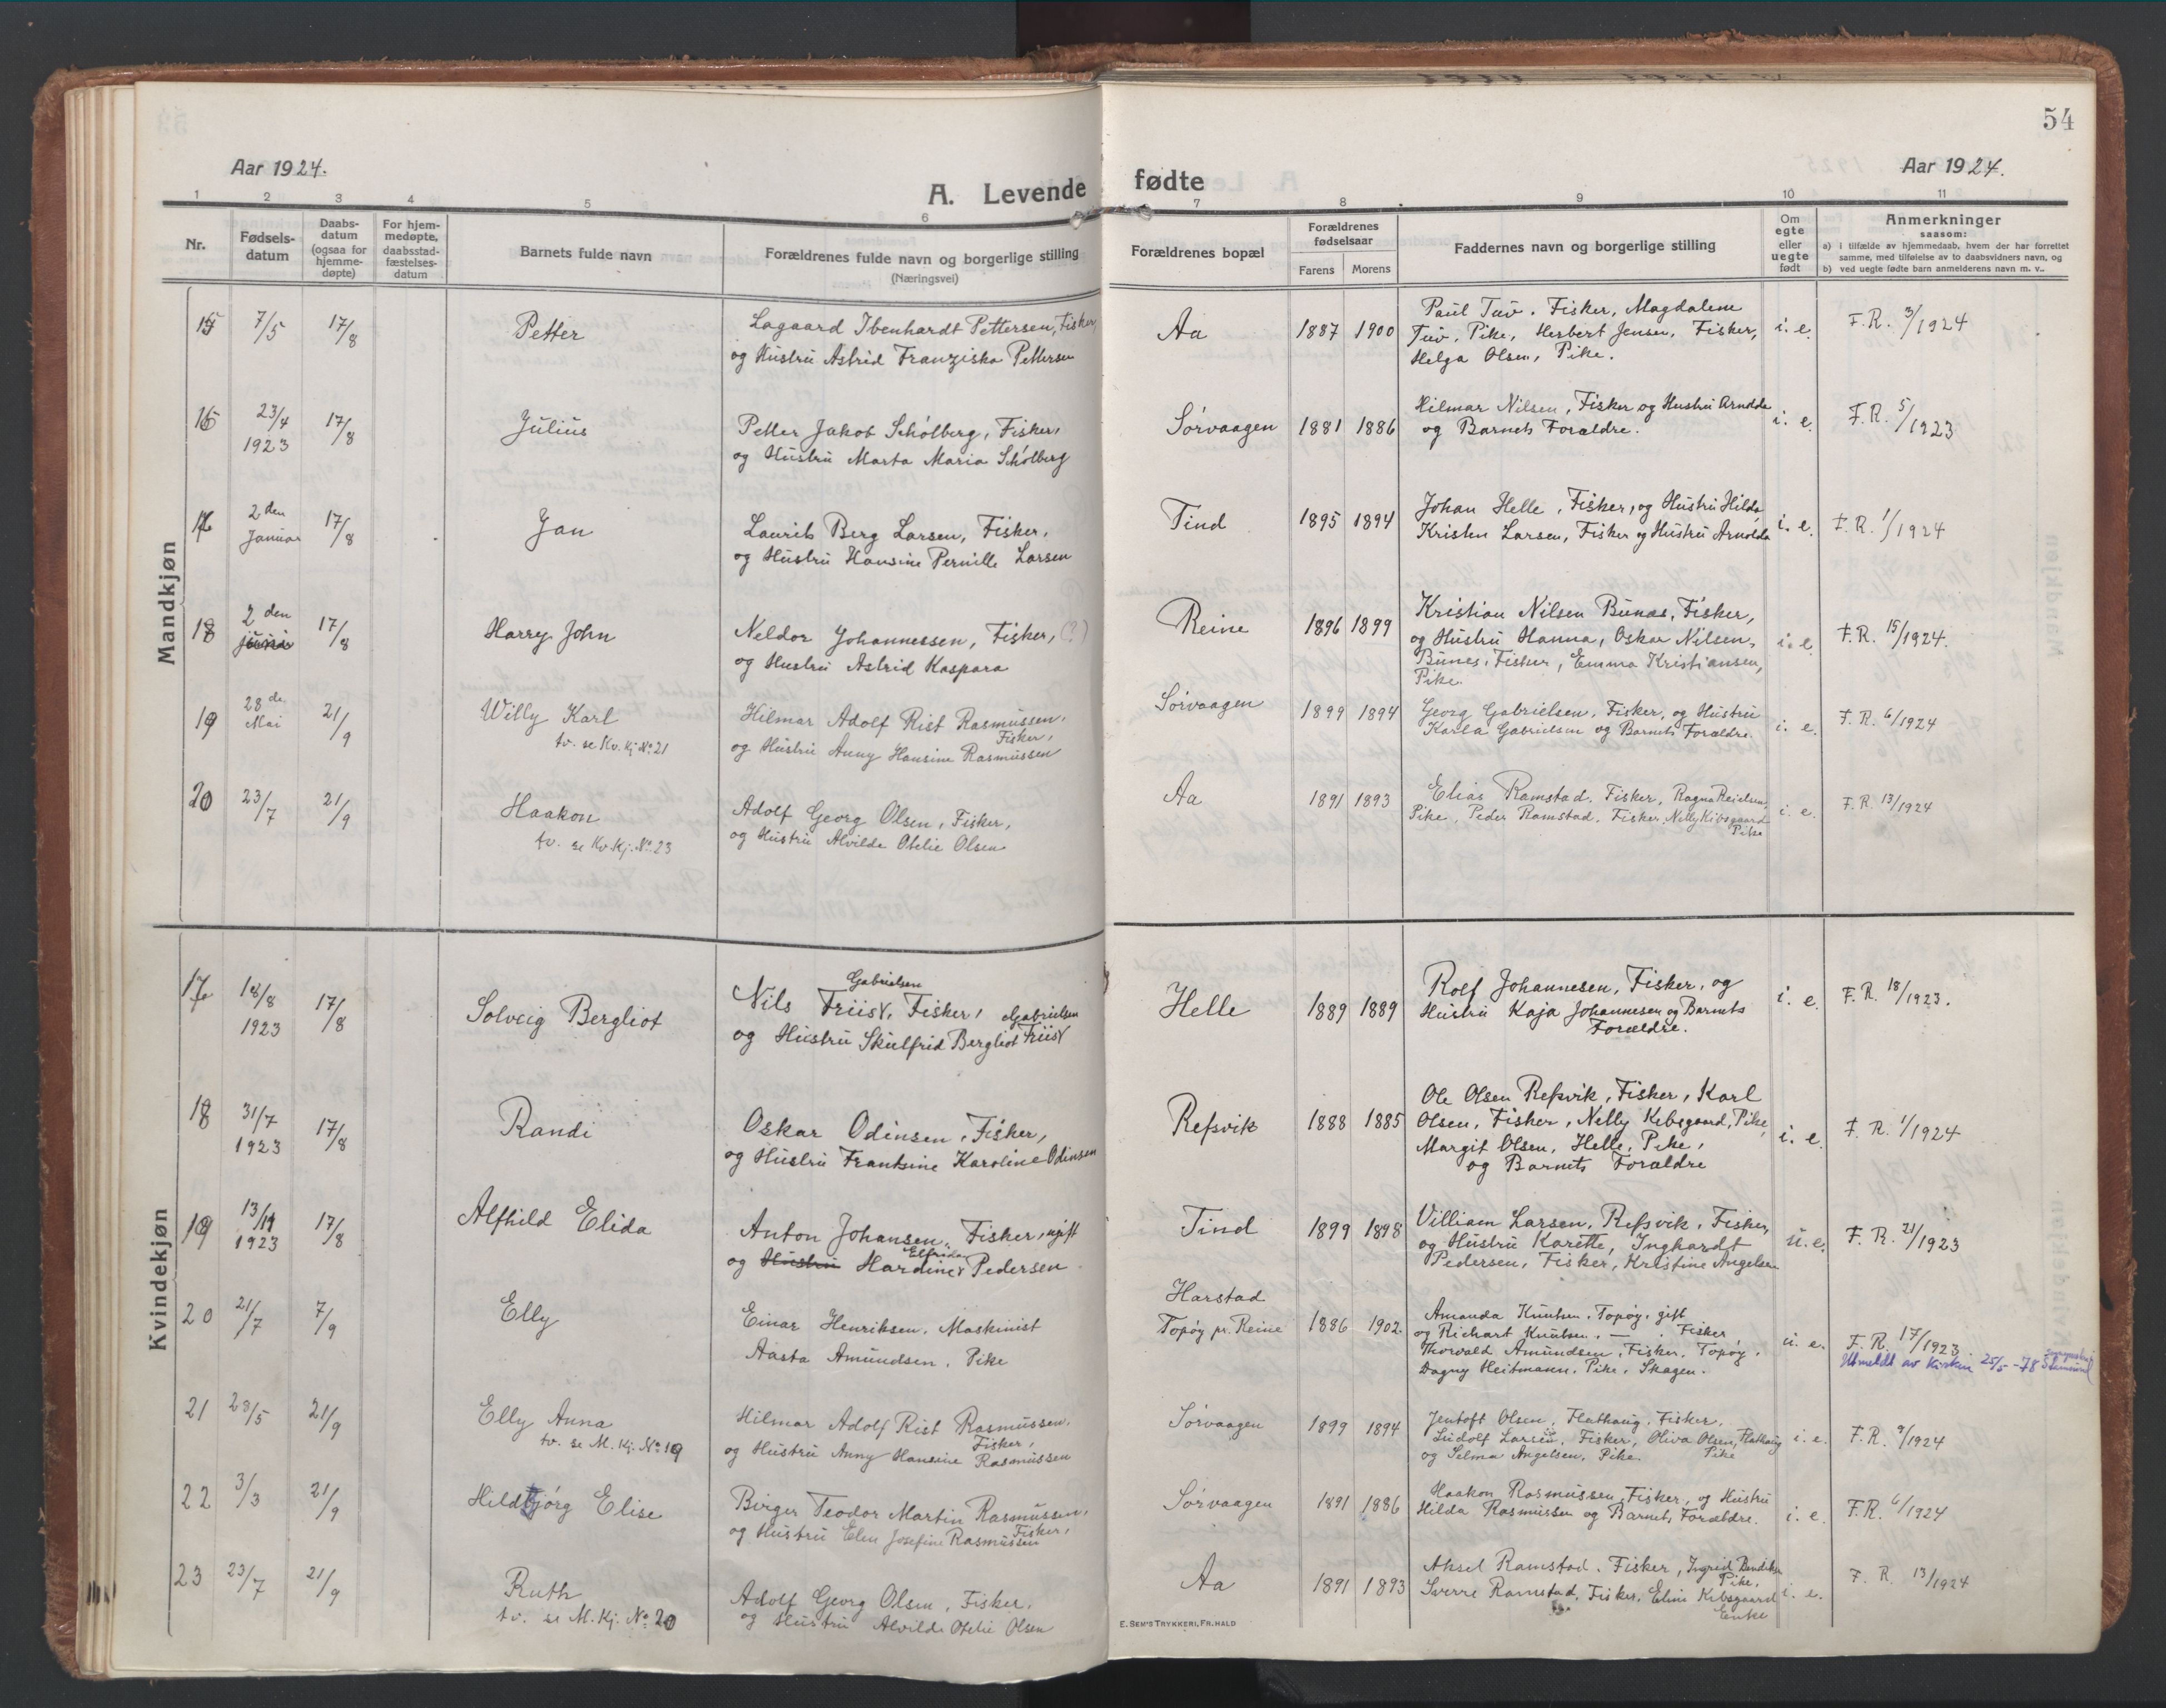 54
Aar 1924.
A. Levende fødte
Aar 1924.
1 2 3 4 5 6 7 8 9 10 11
Nr.
Fødsels-
datum
Daabs-
datum
(ogsaa for
hjemme-
døpte)
For hjem-
medøpte,
daabsstad-
fæstelses-
datum
Barnets fulde navn
Forældrenes fulde navn og borgerlige stilling
(Næringsvei)
Forældrenes bopæl
Forældrenes
fødselsaar
Farens Morens
Faddernes navn og borgerlige stilling
Om
egte
eller
uegte
født
Anmerkninger
saasom:
a) i tilfælde av hjemmedaab, hvem der har forrettet
samme, med tilføielse av to daabsvidners navn, og
b) ved uegte fødte barn anmelderens navn m. v..
Mandkjøn
15 7/5 17/8 Petter
Lagaard Ibenhardt Pettersen, Fisker,
og Hustru Astrid Franziska Pettersen
Aa 1887 1900
Paul Tuv, Fisker, Magdalene
Tuv, Pike, Herbert Jensen, Fisker,
Helga Olsen, Pike.
i. e. F. R. 3/1924
16 23/4 1923 17/8 Julius
Petter Jakob Schólberg, Fisker,
og Hustru Marta Maria Schólberg
Sórvaagen 1881 1886
Hilmar Nilsen, Fisker og Hustru Arnolda
og Barnets Forældre.
i. e. F. R. 5/1923
17 2den Januar 17/8 Jan
Laurits Berg Larsen, Fisker,
og Hustru Hansine Pernille Larsen
Tind 1895 1894
Johan Helle, Fisker, og Hustru Hilda,
Kristen Larsen, Fisker og Hustru Arnolda
i. e. F. R. 1/1924
18 2den juni 17/8 Harry John
Neldor Johannessen, Fisker, (?)
og Hustru Astrid Kaspara
Reine 1896 1899
Kristian Nilsen Bunes, Fisker,
og Hustru Hanna, Oskar Nilsen,
Bunes, Fisker, Emma Kristiansen,
Pike.
i. e. F. R. 15/1924.
19 28de Mai 21/9 Willy Karl
tv. se Kv. Kj. No 21
Hilmar Adolf Rist Rasmussen,
Fisker,
og Hustru Anny Hansine Rasmussen
Sórvaagen 1899 1894
Georg Gabrielsen, Fisker, og Hustru
Karla Gabrielsen og Barnets Forældre.
i. e. F. R. 6/1924
20 23/7 21/9 Haakon
tv. se Kv. Kj. No 23
Adolf Georg Olsen, Fisker,
og Hustru Alvilde Otelie Olsen
Aa 1891 1893
Elias Ramstad, Fisker, Ragna Reielsen,
Pike, Peder Ramstad, Fisker, Nelly Kibsgaard
Pike
i. e. F. R. 13/1924
Kvindekjøn
17 18/8 1923 17/8 Solveig Bergliot
Gabrielsen
Nils Friis, Fisker, Gabrielsen
og Hustru Skulfrid Bergliot Friis
Helle 1889 1889
Rolf Johannesen, Fisker, og
Hustru Kaja Johannesen og Barnets
Forældre.
i. e. F. R. 18/1923.
18 31/7 1923 17/8 Randi
Oskar Odinsen, Fisker,
og Hustru Frantsine Karoline Odinsen
Refsvik 1888 1885
Ole Olsen Refsvik, Fisker, Karl
Olsen, Fisker, Nelly Kibsgaard, Pike,
Margit Olsen, Helle, Pike,
og Barnets Forældre
i. e. F. R. 1/1924
19 13/11 1923 17/8 Alfhild Elida
Anton Johansen, Fisker, ugift
Elfrida
og Hustru Hardine Pedersen
Tind 1899 1898
Villiam Larsen, Refsvik, Fisker,
og Hustru Karette, Inghardt
Pedersen, Fisker, Kristine Angelsen
u. e. F. R. 21/1923
20 21/7 7/9 Elly
Einar Henriksen, Maskinist
Aasta Amundsen, Pike
Harstad
Topøy pr. Reine 1886 1902.
Amanda Knutsen, Topøy, gift
og Richart Knutsen, — . Fisker,
Thorvald Amundsen, Fisker, Topøy,
Dagny Heitmann, Pike, Skagen.
u. e. F. R. 17/1923
Utmeldt av kirken 25/5 - 78
21 28/5 21/9 Elly Anna
tv. se M. Kj. No 19
Hilmar Adolf Rist Rasmussen,
Fisker,
og Hustru Anny Hansine Rasmussen
Sórvaagen 1899 1894
Jentoft Olsen, Flathaug, Fisker,
Ludolf Larsen, Fisker, Oliva Olsen, Flathaug
og Selma Angelsen, Pike. Pike
i. e. F. R. 9/1924
22 3/3 21/9 Hildbjórg Elise
Birger Teodor Martin Rasmussen,
Fisker,
og Hustru Elen Josefine Rasmussen
Sórvaagen 1891 1886
Haakon Rasmussen, Fisker, og Hustru
Hilda Rasmussen og Barnets Forældre.
i. e. F. R. 6/1924
23 23/7 21/9 Ruth
tv. se M. Kj. No 20
Adolf Georg Olsen, Fisker,
og Hustru Alvilde Otelie Olsen
Aa 1891 1893
Aksel Ramstad, Fisker, Ingrid
Pike,
Sverre Ramstad, Fisker, Elini Kibsgaard
Enke
i. e. F. R. 13/1924
E. SEM'S TRYKKERI, FR.HALD